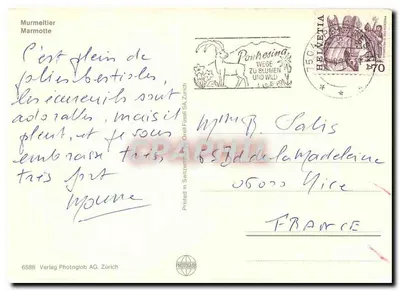 Murmeltier
Marmotte
C'est plein de
jolies bestioles,
les écureuils sont
adorables, mais il
pleut, et je vous
embrasse très
très fort
Pontresina
WEGE
ZU BLUMEN
UND WILD
HELVETIA
70
Salis
de la Madeleine
06000 Nice
FRANCE
Printed in Switzerland
Orell Füssli SA, Zürich
6588 Verlag Photoglob AG, Zürich